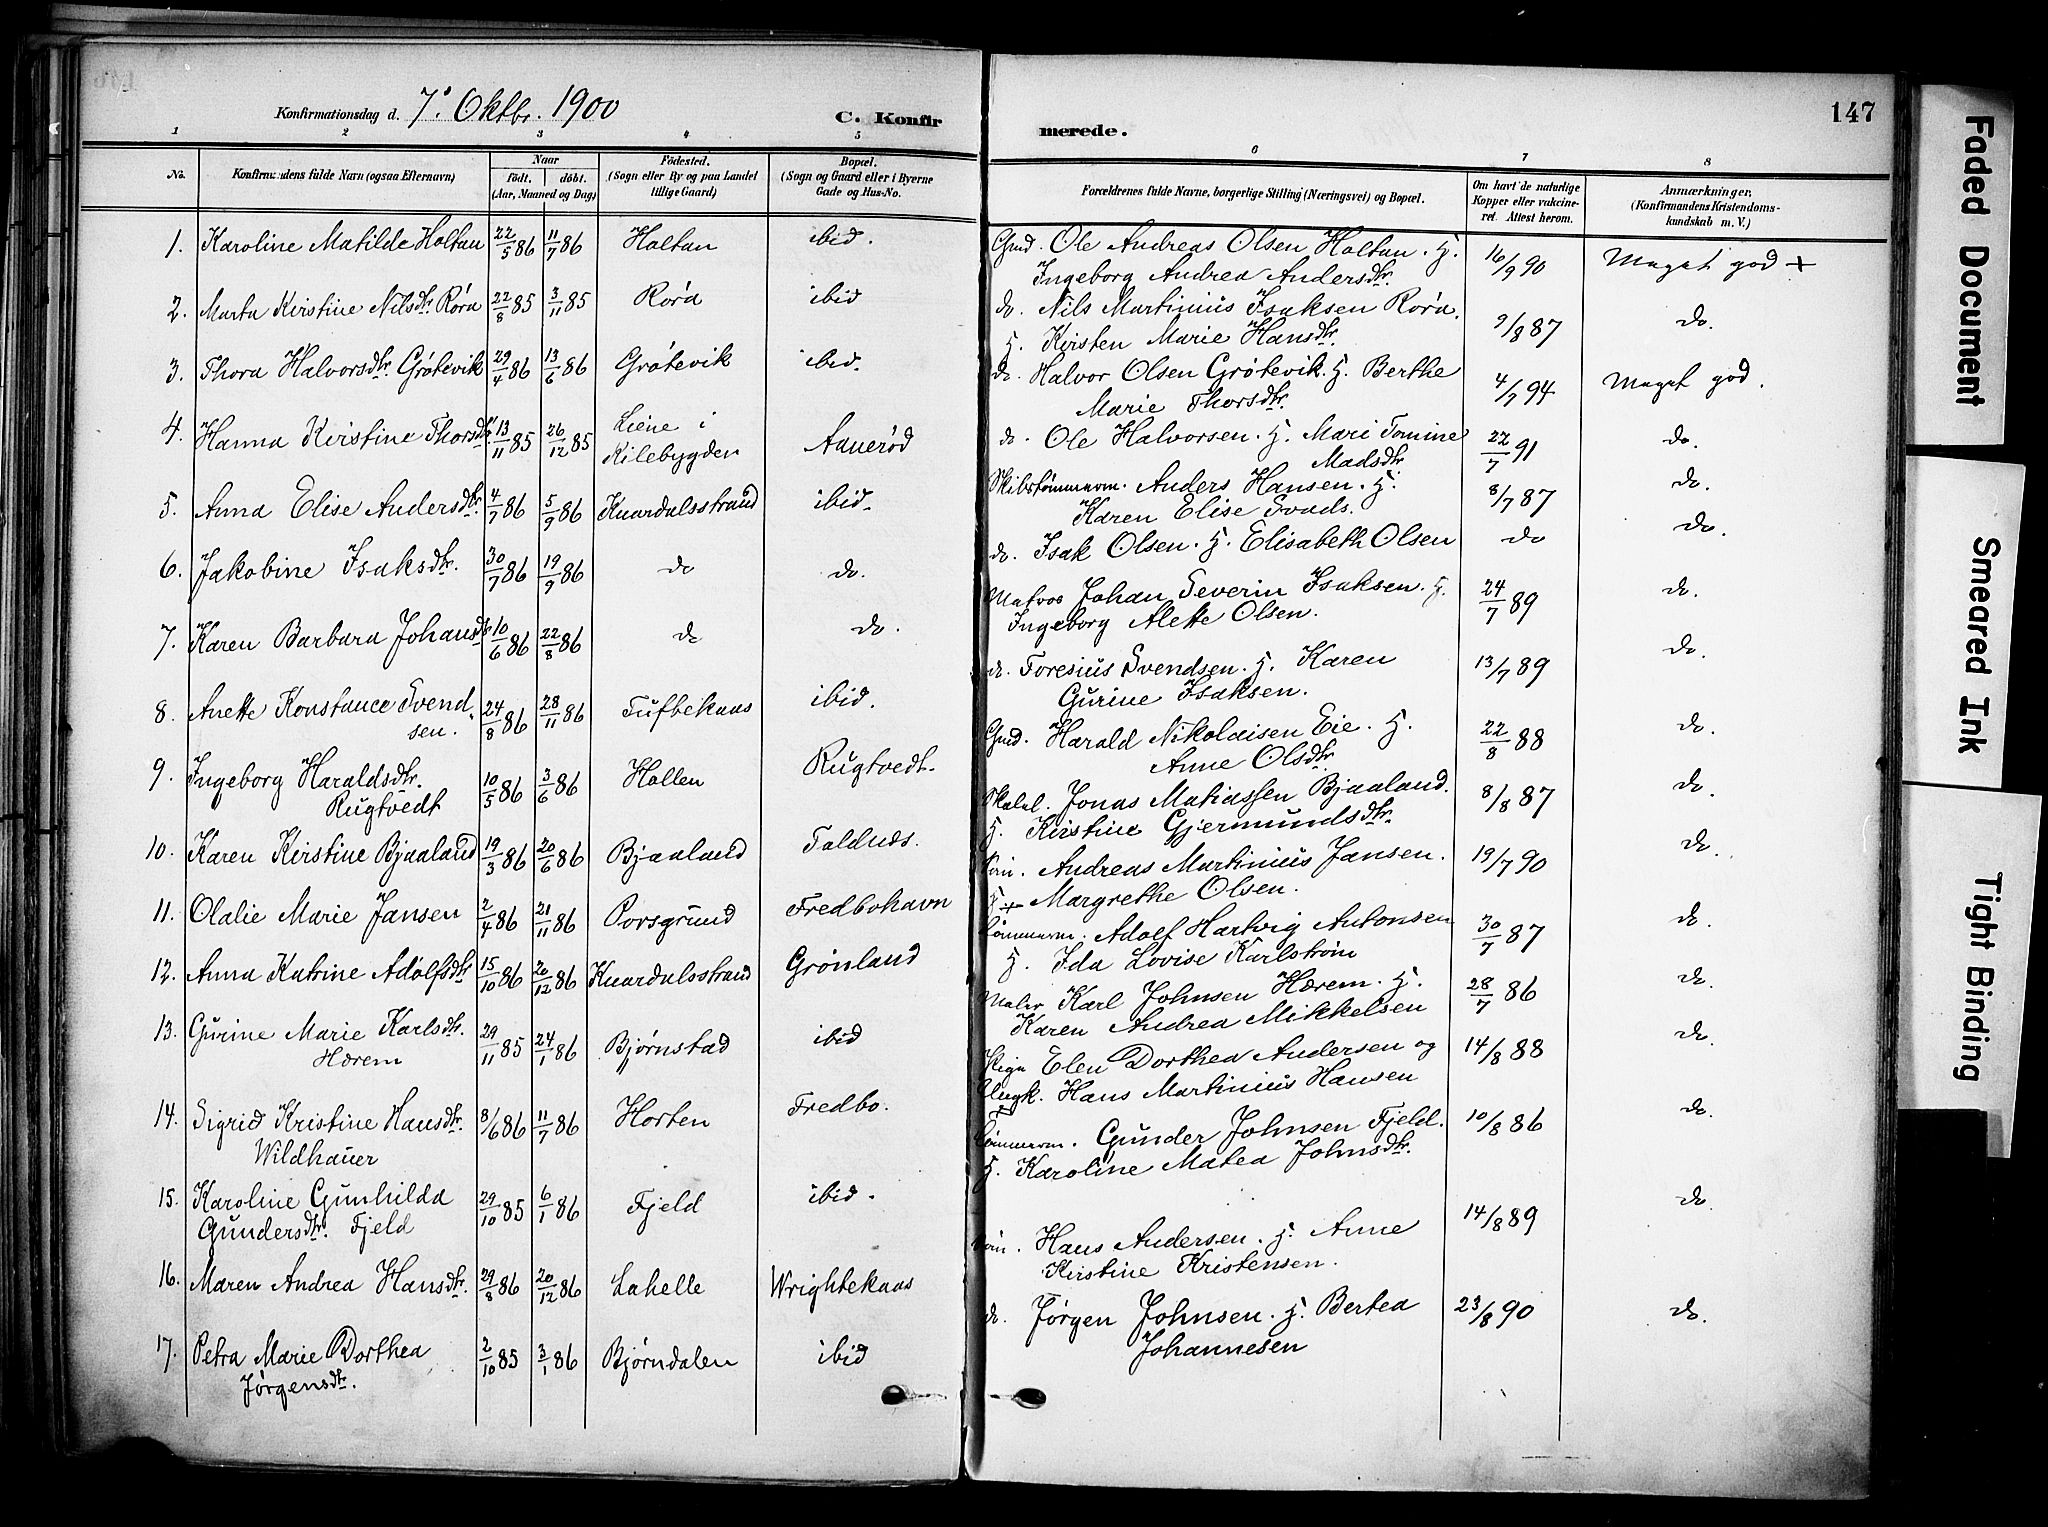 Konfirmationsdag d. 7. Oktbr. 1900
C. Konfir
merede.
147
1 2 3 4 5 6 7 8
No.
Konfirmandens fulde Navn (ogsaa Efternavn)
Naar
födt. döbt.
(Aar, Maaned og Dag)
Födested.
(Sogn eller By og paa Landet
tillige Gaard)
Bopæl.
(Sogn og Gaard eller i Byerne
Gade og Hus-No.
Forældrenes fulde Navne, borgerlige Stilling (Næringsvei) og Bopæl.
Om havt de naturlige
Kopper eller vakcine-
ret. Attest herom.
Anmærkninger.
(Konfirmandens Kristendoms-
kundskab m. V.)
1. Karoline Matilde Holtan 22/5 86 11/7 86 Holtan ibid.
Gmd. Ole Andreas Olsen Holtan. H.
Ingeborg Andrea Andersdtr. 16/9 90 Meget god +
2. Marta Kirstine Nilsdtr. Rørå 22/8 85 3/11 85 Rørå ibid
do. Nils Martinius Isaksen Rørå.
H. Kirsten Marie Hansdtr. 9/8 87 do.
3. Thora Halvorsdtr. Grötevik 29/4 86 13/6 86 Grötevik ibid.
do. Halvor Olsen Grötevik. H. Berthe
Marie Thorsdtr. 4/7 94 Meget god.
4. Hanna Kirstine Thorsdtr 13/11 85 26/12 85 Liene i
Kilebygden Aaerød
do. Ole Halvorsen. H. Mari Tomine
Madsdtr. 22/7 91 do.
5. Anna Elise Andersdtr. 4/7 86 5/9 86 Knardalsstrand ibid.
Skibstømmerm. Anders Hansen. H.
Karen Elise Svads. 8/7 87 do.
6. Jakobine Isaksdtr. 30/7 86 19/9 86 do do.
do. Isak Olsen. H. Elisabeth Olsen do do.
7. Karen Barbara Johansdtr 10/6 86 22/8 86 do do.
Matros Johan Severin Isaksen. H.
Ingeborg Alette Olsen. 24/7 89 do.
8. Anette Konstance Svend-
sen. 24/8 86 28/11 86 Tufbekaas ibid.
do. Toresius Svendsen. H. Karen
Gurine Isaksen. 13/7 89 do.
9. Ingeborg Haraldsdtr.
Rugtvedt 10/5 86 3/6 86 Hollen Rugtvedt.
Gmd. Harald Nikolaisen Eie. H.
Anne Olsdtr. 22/8 88 do.
10. Karen Kirstine Bjaaland 19/3 86 20/6 86 Bjaaland Taldnes.
Jonas Matiassen Bjaaland.
H. Kirstine Gjermundsdtr. 8/8 87 do.
11. Olalie Marie Jansen 2/4 86 21/11 86 Porsgrund Fredbohavn
Andreas Martinius Jansen.
H + Margrethe Olsen. 19/7 90 do.
12. Anna Katrine Adolfsdtr 15/10 86 20/12 86 Knardalsstrand Grønland
Tømmerm. Adolf Hartvig Antonsen
H. Ida Lovise Karlstrøm 30/7 87 do.
13. Gurine Marie Karlsdtr.
Hærem 29/11 85 24/1 86 Bjørnstad ibid
Maler Karl Johnsen Hærem. H.
Karen Andrea Mikkelsen 28/7 86 do.
14. Sigrid Kristine Hansdtr.
Wildhauer 8/6 86 11/7 86 Horten Fredbo.
Pige Elen Dorthea Andersen og
Ungk. Hans Martinius Hansen 14/8 88 do.
15. Karoline Gunhilda
Gundersdtr. Fjeld 29/10 85 6/1 86 Fjeld ibid.
Tømmerm. Gunder Johnsen Fjeld.
H. Karoline Matea Johnsdtr. 10/8 86 do.
16. Maren Andrea Hansdtr. 29/8 86 20/12 86 Lahelle Wrightekaas
Hans Andersen. H. Anne
Kirstine Kristensen. 14/8 89 do.
17. Petra Marie Dorthea
Jørgensdtr. 2/10 85 3/1 86 Bjørndalen ibid
do. Jørgen Johnsen. H. Bertea
Johannesen 23/8 90 do.
Faded Document
Smeared Ink
Tight Binding